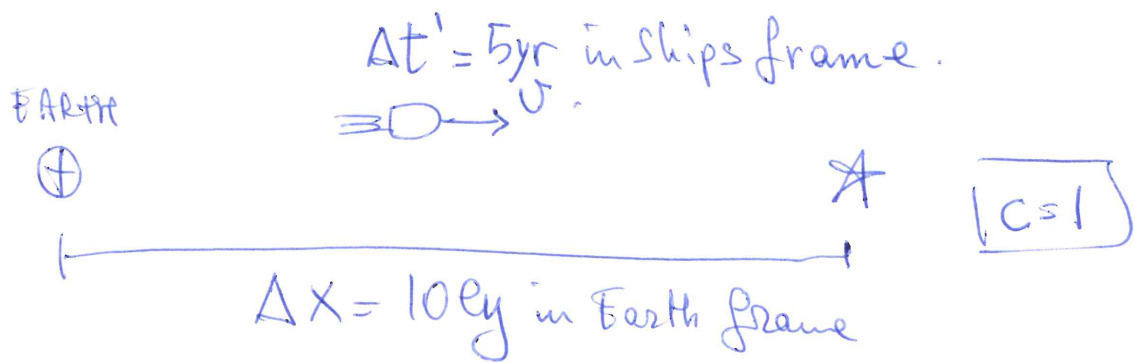 Δt' = 5yr in ships frame.
EARTH
v.
c=1
Δx = 10 ly in Earth frame